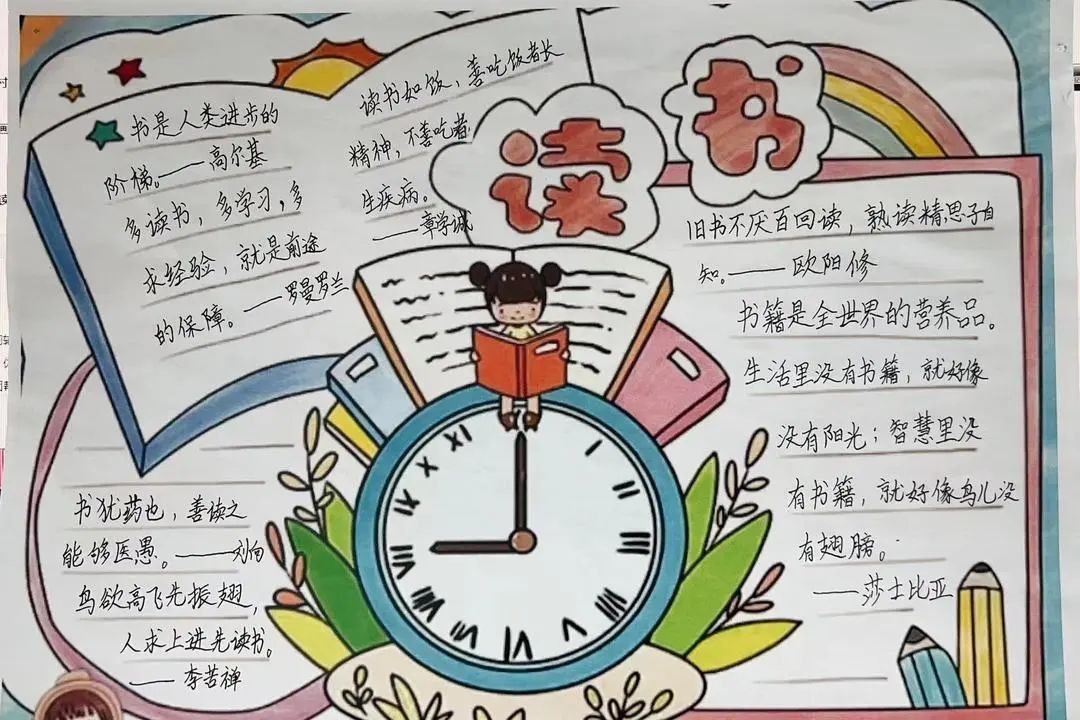 读书
书是人类进步的
阶梯。——高尔基
多读书，多学习，多
求经验，就是前途
的保障。——罗曼罗兰
读书如饭，善吃饭者长
精神，不善吃者
生疾病。
——章学诚
旧书不厌百回读，熟读精思子自
知。——欧阳修
书籍是全世界的营养品。
生活里没有书籍，就好像
没有阳光；智慧里没
有书籍，就好像鸟儿没
有翅膀。
——莎士比亚
书犹药也，善读之
能够医愚。——刘向
鸟欲高飞先振翅，
人求上进先读书。
——李苦禅
XI
I
III
V
VI
VII
VIII